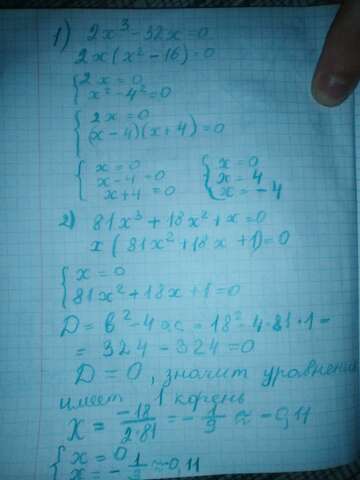 1) 2x³ - 32x = 0
2x(x² - 16) = 0
{ 2x = 0
x² - 4² = 0
{ 2x = 0
(x - 4)(x + 4) = 0
{ x = 0
x - 4 = 0
x + 4 = 0
{ x = 0
x = 4
x = -4
2) 81x³ + 18x² + x = 0
x(81x² + 18x + 1) = 0
{ x = 0
81x² + 18x + 1 = 0
D = b² - 4ac = 18² - 4·81·1 =
= 324 - 324 = 0
D = 0, значит уравнение
имеет 1 корень
X = -18/2·81 = -1/9 ≈ -0,11
{ x = 0
x = -1/9 ≈ -0,11